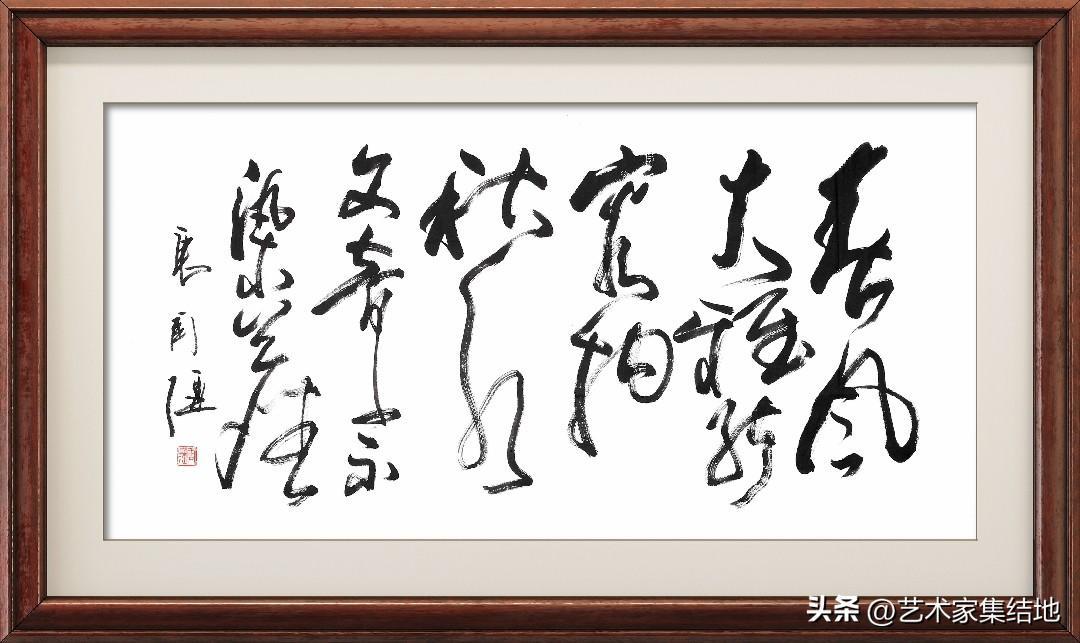 春风
大雅能
容物
秋水
文章不
染塵
头条 @艺术家集结地